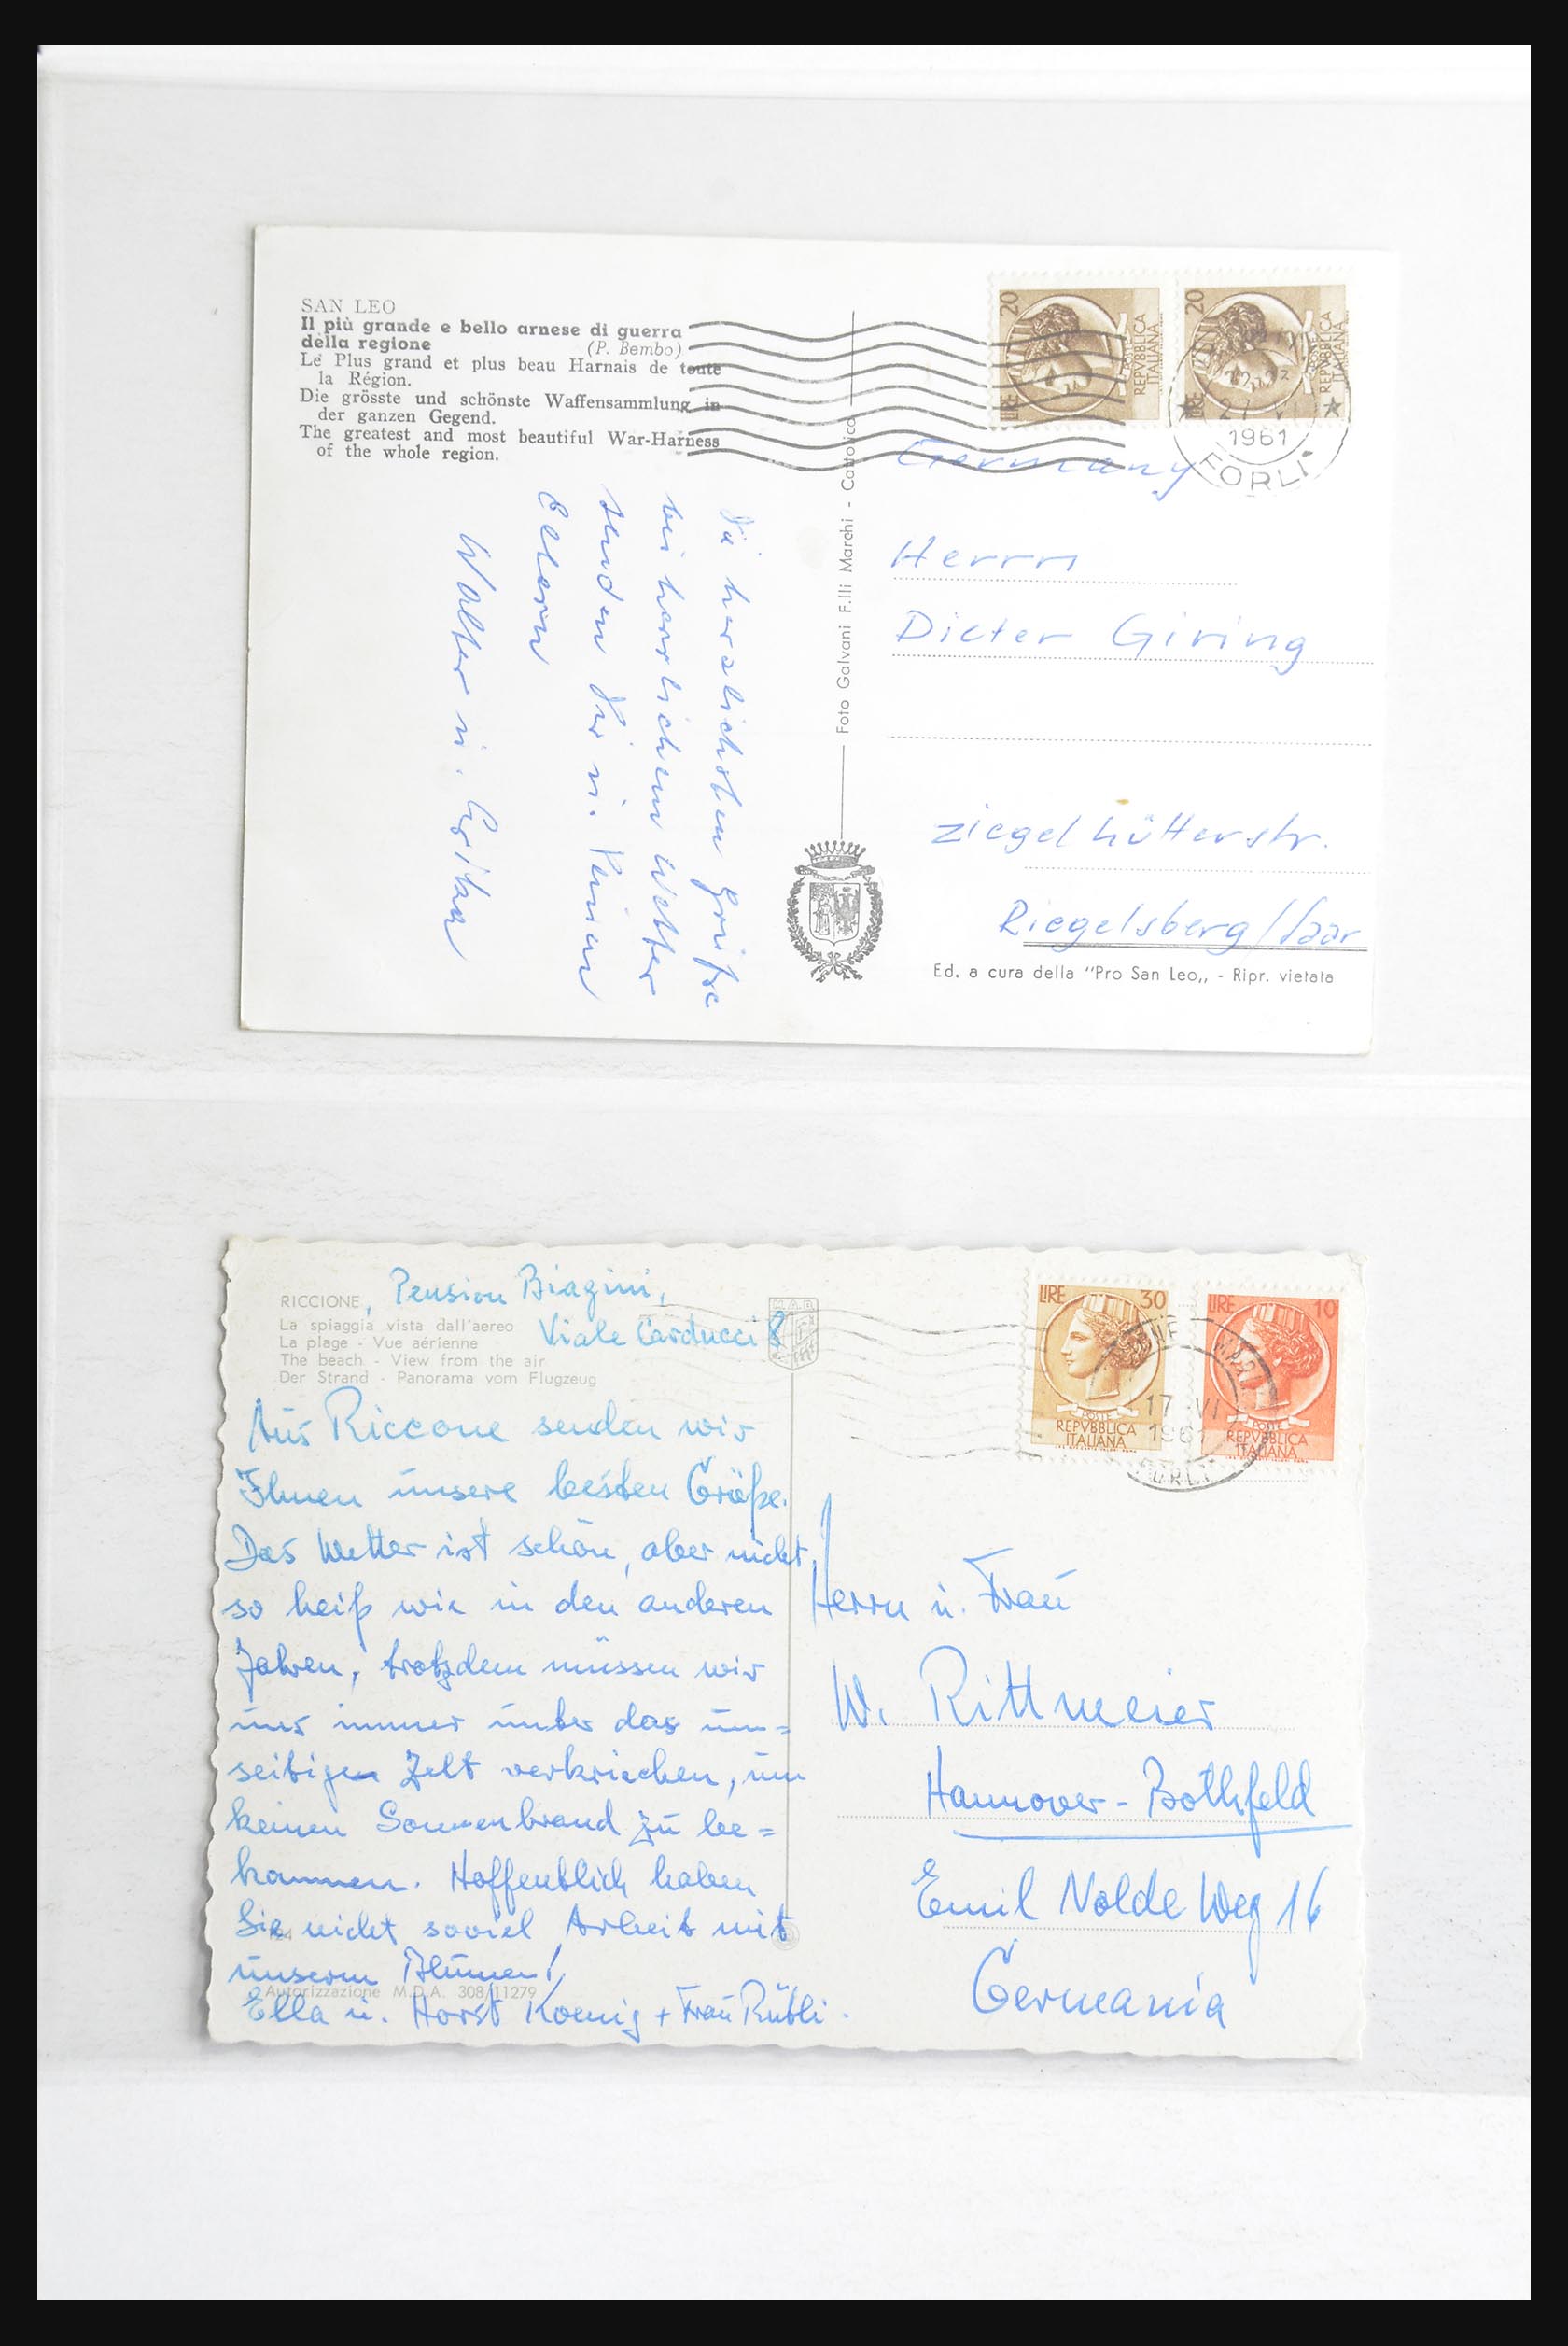 SAN LEO
Il più grande e bello arnese di guerra
della regione
(P. Bembo)
Le Plus grand et plus beau Harnais de toute
la Région.
Die grösste und schönste Waffensammlung in
der ganzen Gegend.
The greatest and most beautiful War-Harness
of the whole region.
herzlichsten Grüße
bei herrlichem Wetter
senden Dir u. Deinen
Eltern
Walter u.
Foto Galvani F.lli Marchi - Cattolica
20
LIRE
POSTE
REPVBBLICA
ITALIANA
20
LIRE
POSTE
REPVBBLICA
ITALIANA
1961
FORLI'
Germany
Herrn
Dieter Giring
Ziegelhütterstr.
Riegelsberg/Saar
Ed. a cura della "Pro San Leo„ - Ripr. vietata
RICCIONE, Pension Biagini,
La spiaggia vista dall'aereo
Viale Carducci 8
La plage - Vue aérienne
The beach - View from the air
Der Strand - Panorama vom Flugzeug
Aus Riccone senden wir
Ihnen unsere besten Grüße.
Das Wetter ist schön, aber nicht
so heiß wie in den anderen
Jahren, trotzdem müssen wir
uns immer unter das um=
seitigen Zelt verkriechen, um
keinen Sonnenbrand zu be=
kommen. Hoffentlich haben
Sie nicht soviel Arbeit mit
unseren Blumen!
Autorizzazione M.D.A. 308/11279
Ella u. Horst Koenig + Frau Rübli.
LIRE 30
POSTE
REPVBBLICA
ITALIANA
LIRE 10
POSTE
REPVBBLICA
ITALIANA
17 VI
1961
FORLI
Herrn u. Frau
W. Rittmeier
Hannover-Bothfeld
Emil Nolde Weg 16
Germania